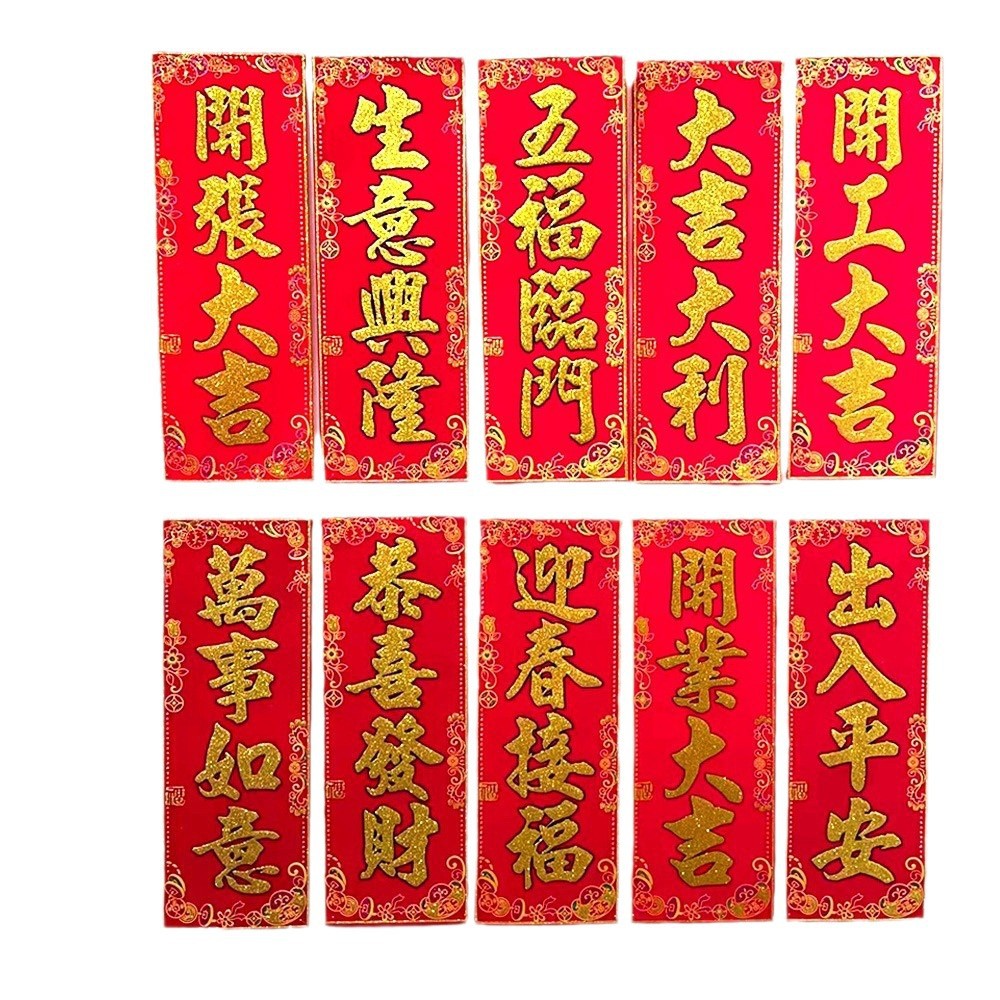 開張大吉
生意興隆
五福臨門
大吉大利
開工大吉
萬事如意
恭喜發財
迎春接福
開業大吉
出入平安